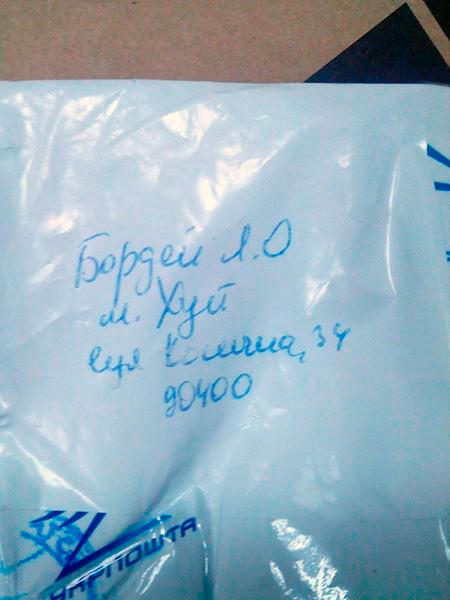 Бордей Л.О
м. Хуст
вул 34
90400
УКРПОШТА